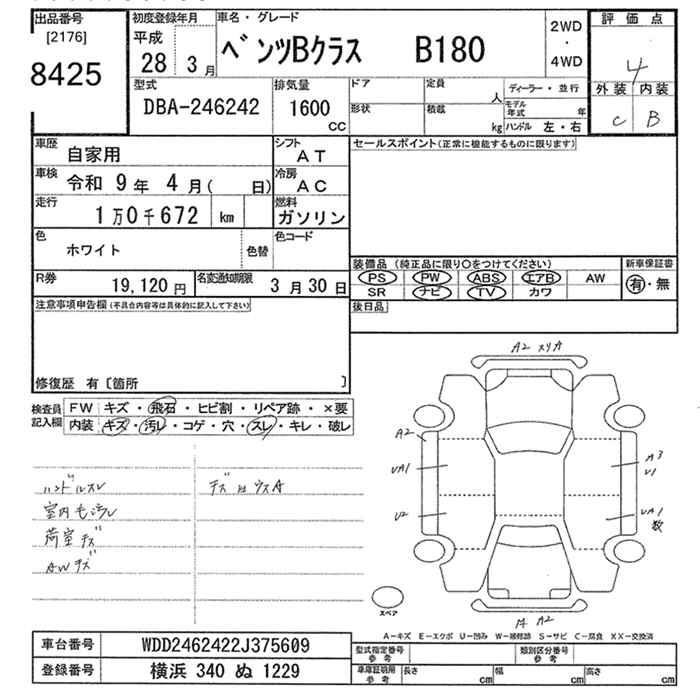 出品番号
[2176]
8425
初度登録年月
平成
28 3 月
車名・グレード
ベンツBクラス B180
2WD
・
4WD
評価点
4
外装 内装
C B
型式
DBA-246242
排気量
1600
CC
ドア
定員
人
形状
積載
kg
ディーラー・並行
モデル年式 年
ハンドル 左・右
車歴
自家用
シフト
AT
車検
令和 9 年 4 月( 日)
冷房
AC
走行
1万0千672 km
燃料
ガソリン
色
ホワイト
色替
色コード
R券
19,120 円
名変通知期限
3 月 30 日
セールスポイント(正常に機能するものに限ります)
装備品(純正品に限り〇をつけてください)
新車保証書
PS PW ABS エアB AW
有・無
SR ナビ TV カワ
後日品
注意事項申告欄(不具合内容等は具体的に記入して下さい)
修復歴 有〔箇所 〕
検査員記入欄
FW キズ・飛石・ヒビ割・リペア跡・×要
内装 キズ・汚レ・コゲ・穴・スレ・キレ・破レ
ハンドルスレ
室内モヨゴレ
荷室キズ
AWキズ
A2 スリキズ
A2
UA1
U2
A3
U1
UA1
数
A2
スペア
A-キズ E-エクボ U-凹み W-補修跡 S-サビ C-腐食 XX-交換済
車台番号
WDD2462422J375609
登録番号
横浜 340 ぬ 1229
型式指定番号
参考
類別区分番号
参考
車庫証明用
参考
長さ cm
幅 cm
高さ cm